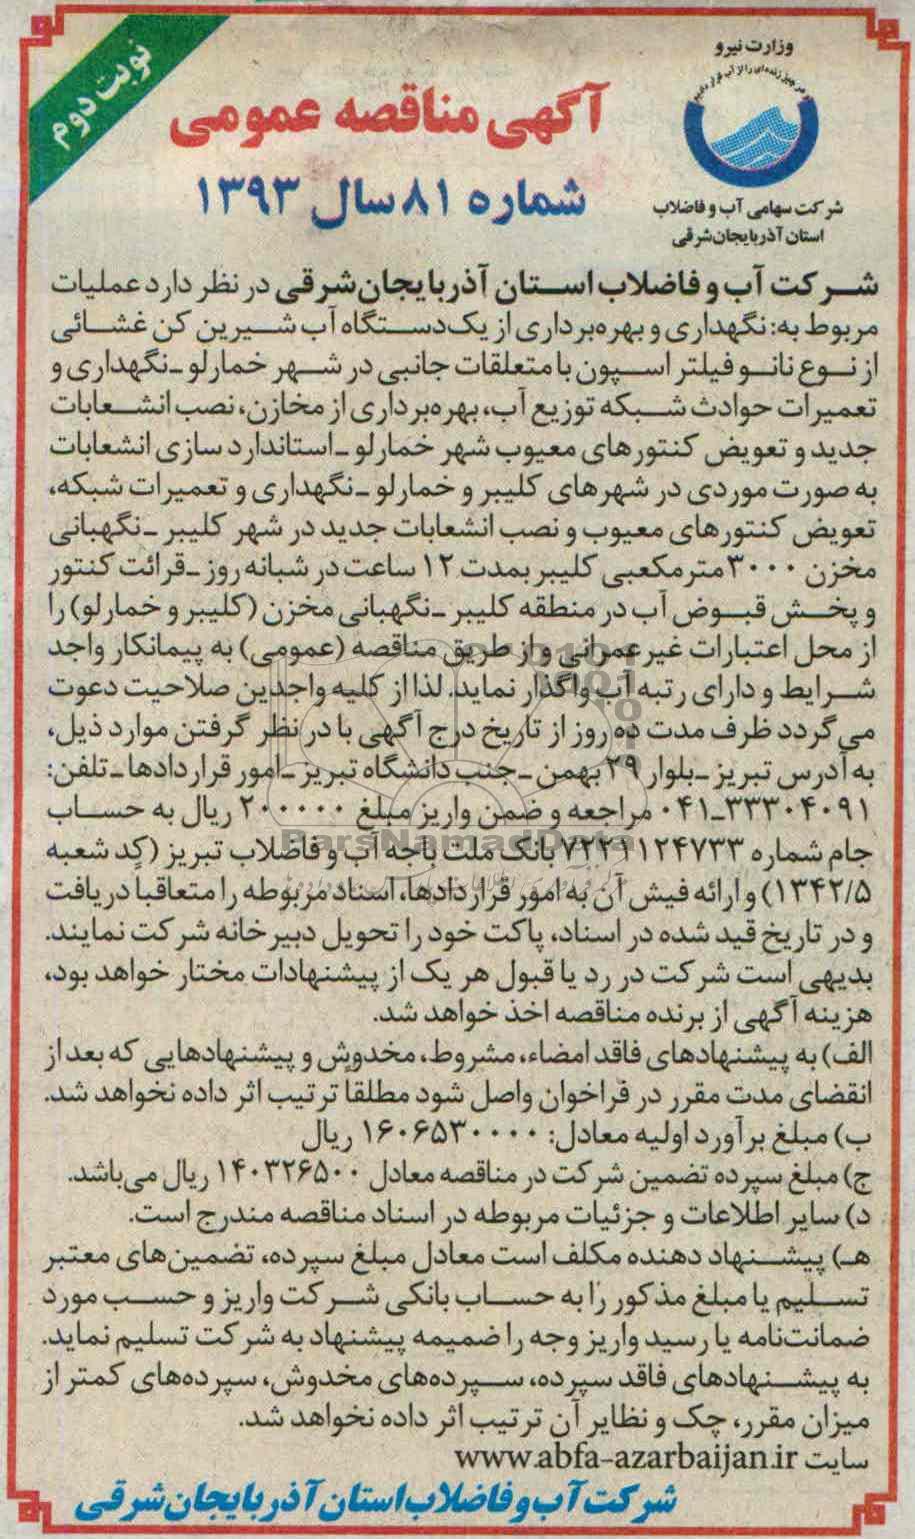 نوبت دوم
وزارت نیرو
آگهی مناقصه عمومی
شماره ۸۱ سال ۱۳۹۳
شرکت سهامی آب و فاضلاب
استان آذربایجان‌شرقی
شرکت آب و فاضلاب استان آذربایجان‌شرقی در نظر دارد عملیات
مربوط به: نگهداری و بهره‌برداری از یک‌دستگاه آب شیرین کن غشائی
از نوع نانو فیلتر اسیون با متعلقات جانبی در شهر خمارلو ـ نگهداری و
تعمیرات حوادث شبکه توزیع آب، بهره‌برداری از مخازن، نصب انشعابات
جدید و تعویض کنتورهای معیوب شهر خمارلو ـ استاندارد سازی انشعابات
به صورت موردی در شهرهای کلیبر و خمارلو ـ نگهداری و تعمیرات شبکه،
تعویض کنتورهای معیوب و نصب انشعابات جدید در شهر کلیبر ـ نگهبانی
مخزن ۳۰۰۰ مترمکعبی کلیبر بمدت ۱۲ ساعت در شبانه روز ـ قرائت کنتور
و پخش قبوض آب در منطقه کلیبر ـ نگهبانی مخزن (کلیبر و خمارلو) را
از محل اعتبارات غیرعمرانی و از طریق مناقصه (عمومی) به پیمانکار واجد
شرایط و دارای رتبه آب واگذار نماید. لذا از کلیه واجدین صلاحیت دعوت
می گردد ظرف مدت ده روز از تاریخ درج آگهی با در نظر گرفتن موارد ذیل،
به آدرس تبریز ـ بلوار ۲۹ بهمن ـ جنب دانشگاه تبریز ـ امور قراردادها ـ تلفن:
۰۴۱-۳۳۳۰۴۰۹۱ مراجعه و ضمن واریز مبلغ ۲۰۰۰۰۰ ریال به حساب
جام شماره ۷۲۲۱۱۲۴۷۳۳ بانک ملت باجه آب و فاضلاب تبریز (کد شعبه
۱۳۴۲/۵) و ارائه فیش آن به امور قراردادها، اسناد مربوطه را متعاقباً دریافت
و در تاریخ قید شده در اسناد، پاکت خود را تحویل دبیرخانه شرکت نمایند.
بدیهی است شرکت در رد یا قبول هر یک از پیشنهادات مختار خواهد بود،
هزینه آگهی از برنده مناقصه اخذ خواهد شد.
الف) به پیشنهادهای فاقد امضاء، مشروط، مخدوش و پیشنهادهایی که بعد از
انقضای مدت مقرر در فراخوان واصل شود مطلقاً ترتیب اثر داده نخواهد شد.
ب) مبلغ برآورد اولیه معادل: ۱۶۰۶۵۳۰۰۰۰ ریال
ج) مبلغ سپرده تضمین شرکت در مناقصه معادل ۱۴۰۳۲۶۵۰۰ ریال می‌باشد.
د) سایر اطلاعات و جزئیات مربوطه در اسناد مناقصه مندرج است.
هـ) پیشنهاد دهنده مکلف است معادل مبلغ سپرده، تضمین‌های معتبر
تسلیم یا مبلغ مذکور را به حساب بانکی شرکت واریز و حسب مورد
ضمانت‌نامه یا رسید واریز وجه را ضمیمه پیشنهاد به شرکت تسلیم نماید.
به پیشنهادهای فاقد سپرده، سپرده‌های مخدوش، سپرده‌های کمتر از
میزان مقرر، چک و نظایر آن ترتیب اثر داده نخواهد شد.
سایت www.abfa-azarbaijan.ir
شرکت آب و فاضلاب استان آذربایجان شرقی
ParsNamadData